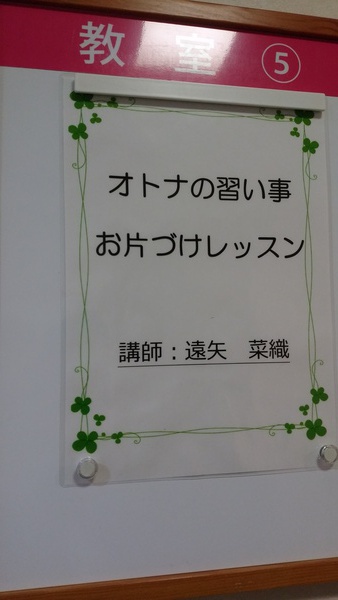 教室 ⑤
オトナの習い事
お片づけレッスン
講師：遠矢　菜織